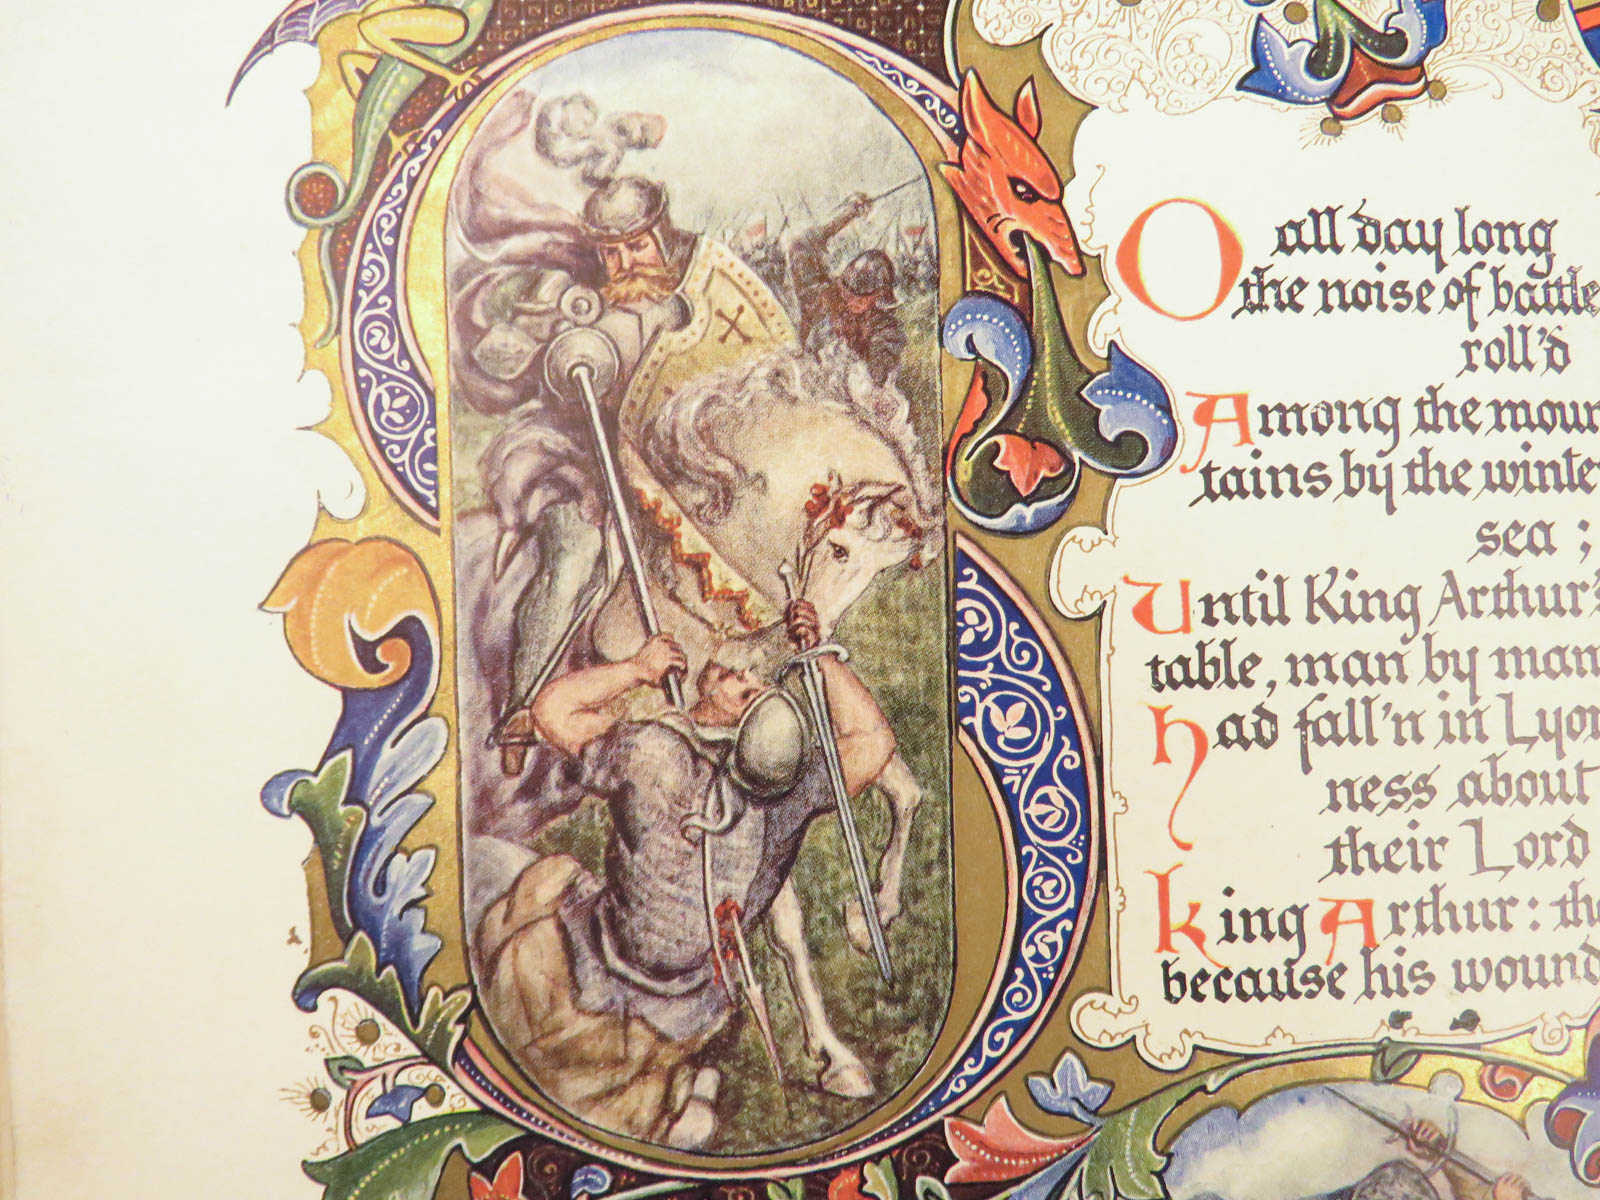 O all day long
the noise of battle
roll'd
Among the moun
tains by the winter
sea;
Until King Arthur's
table, man by man
had fall'n in Lyon
ness about
their Lord
king Arthur: the
because his wound